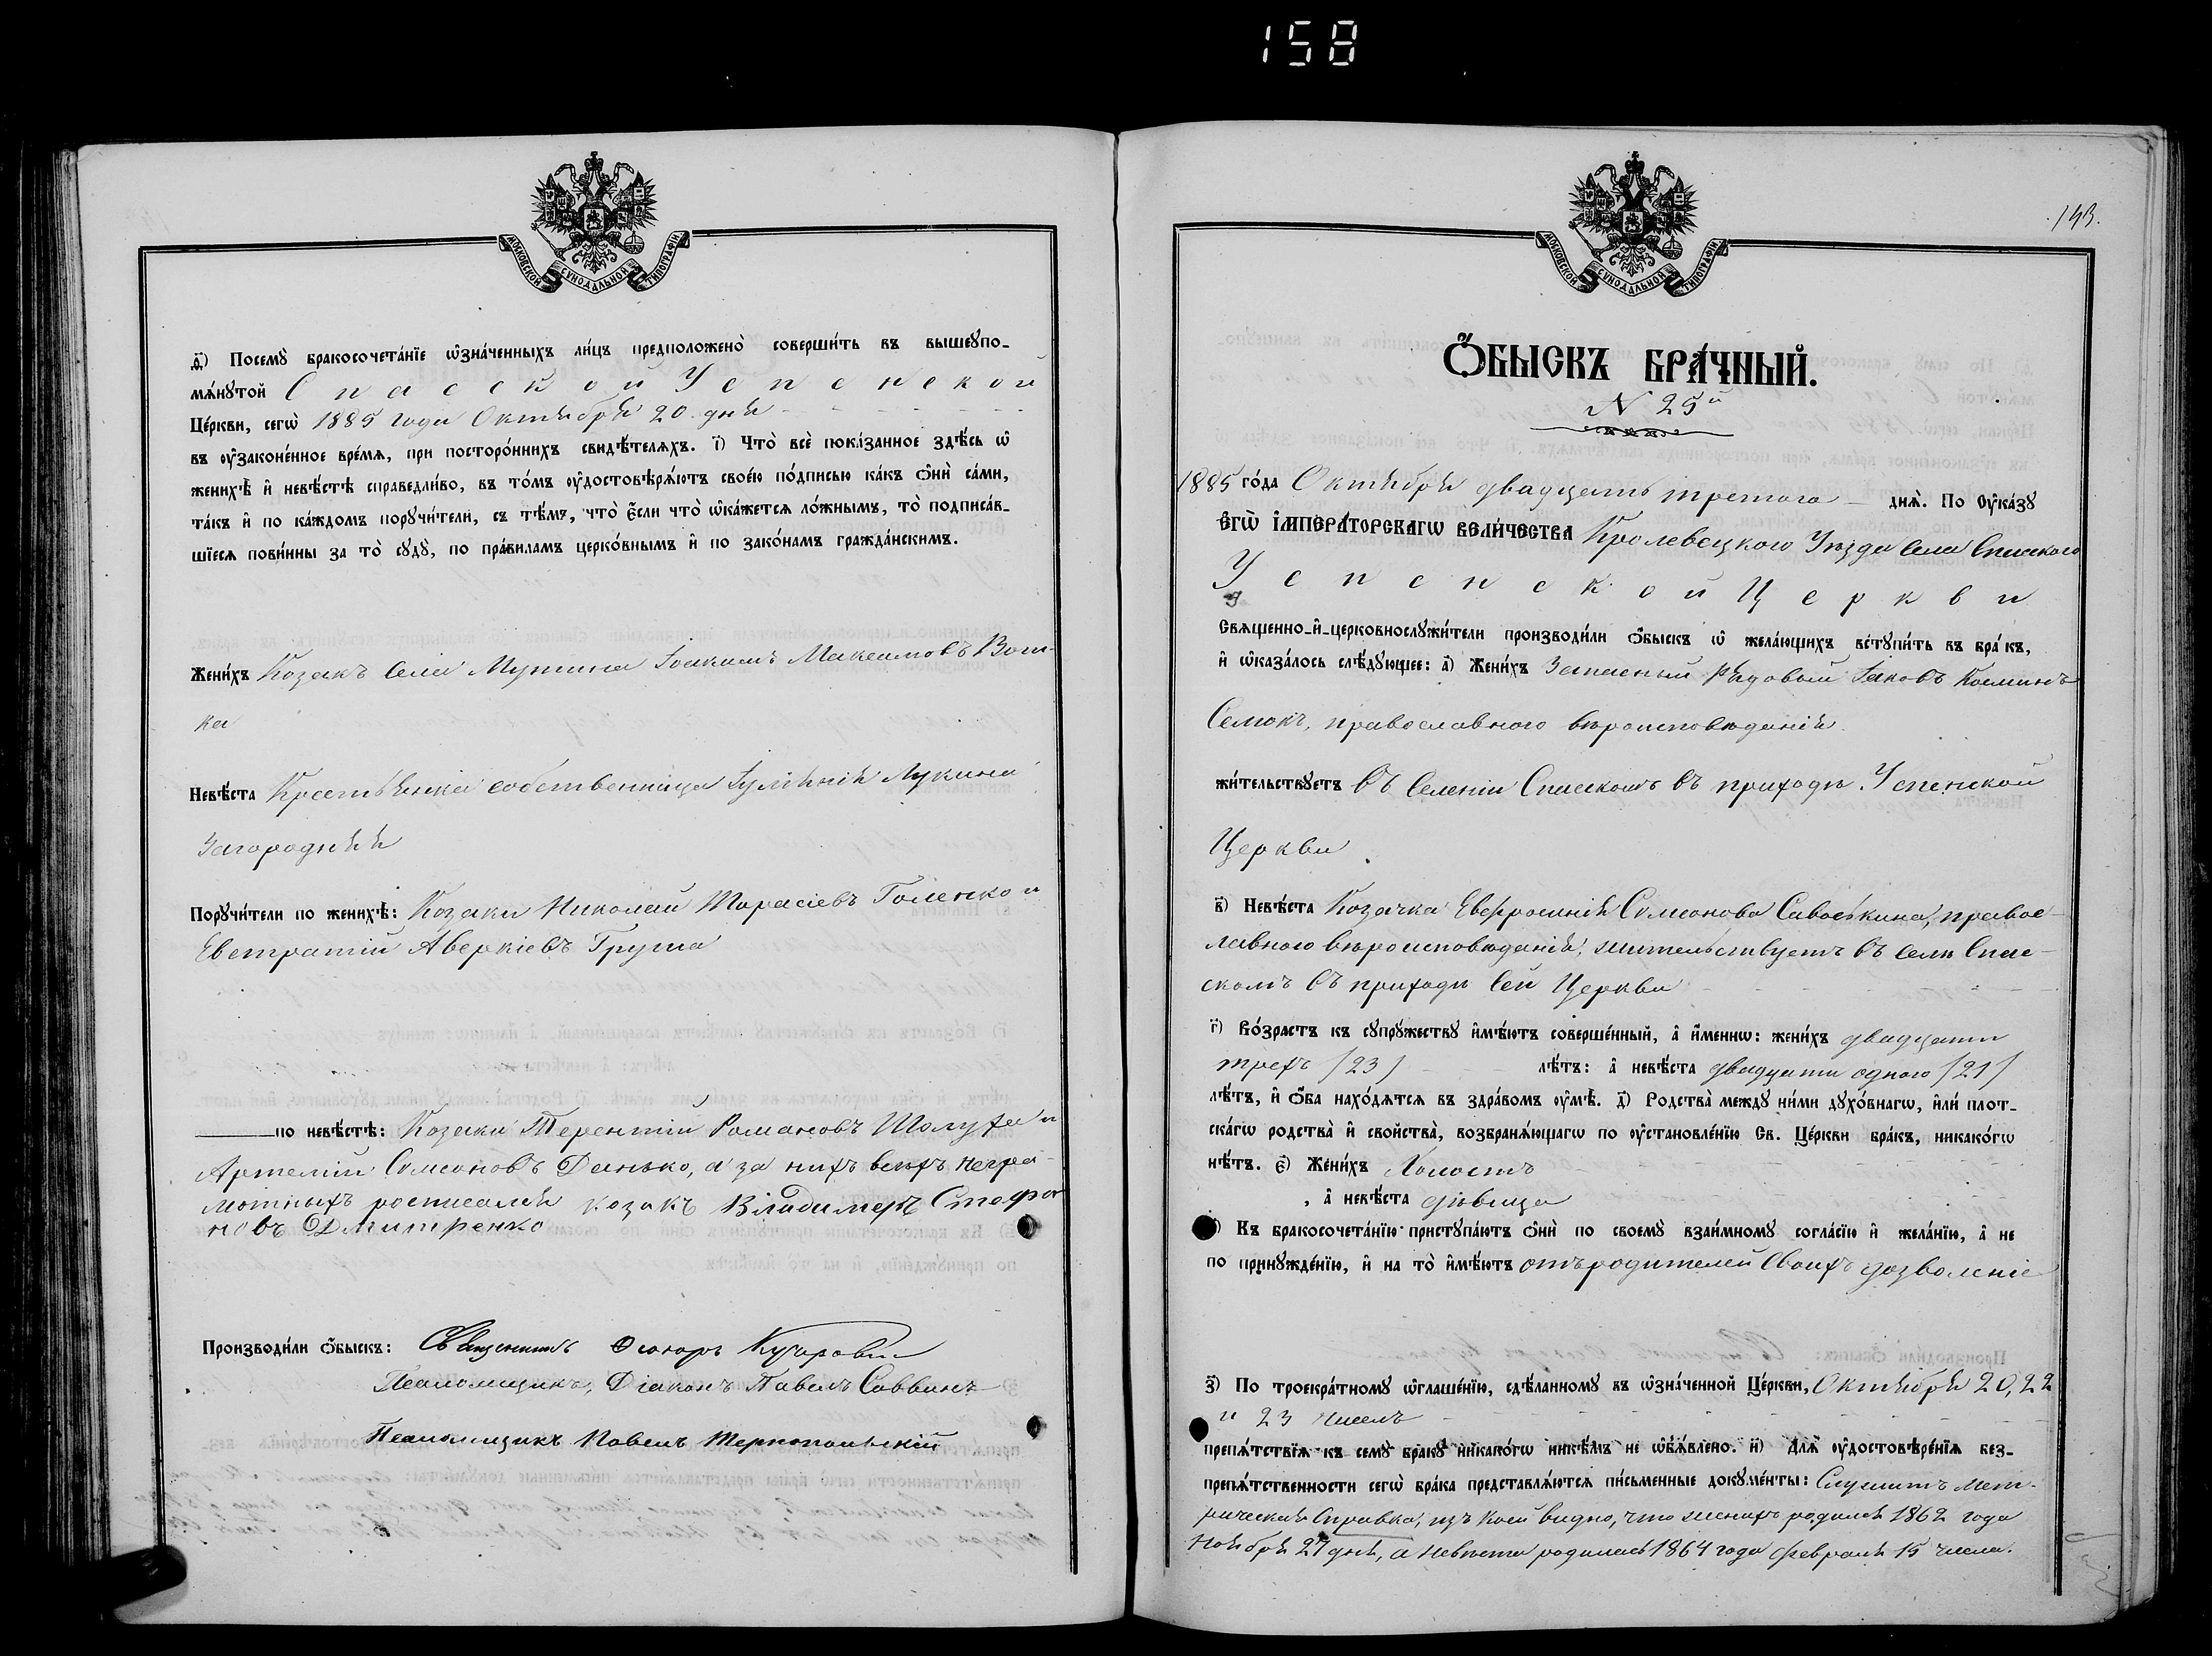 158
МОСКОВСКОЙ СѴНОДАЛЬНОЙ ТИПОГРАФІИ
д҃і) Посемꙋ̀ бракосочета́нїе ѡ҆зна́ченныхъ ли́цъ предположено̀ соверши́ть въ вышеꙋпо-
мѧ́нꙋтой Спасской Успенской
Це́ркви, сегѡ̀ 1885 года Октября 20. дня
въ ᲂу҆законе́нное вре́мѧ, при посторо́ннихъ свидѣ́телѧхъ. і҃) Что̀ всѐ пока́занное здѣ́сь ѡ҆
женихѣ̀ и҆ невѣ́стѣ справедли́во, въ то́мъ ᲂу҆достовѣрѧ́ютъ свое́ю по́дписью ка́къ ѻ҆нѝ са́ми,
та́къ и҆ по ка́ждомъ порꙋчи́тели, съ тѣ́мъ, что̀ є҆́сли что̀ ѡ҆ка́жетсѧ ло́жнымъ, то̀ подписа́в-
шїесѧ пови́нны за то̀ сꙋдꙋ̀, по пра́виламъ церко́внымъ и҆ по зако́намъ гражда́нскимъ.
Жени́хъ Козакъ Села Мутина Іоакимъ Максимовъ Вот-
ка
Невѣ́ста Крестьянка собственница Гулянія Лукина
Загородняя
Порꙋчи́тели по женихѣ̀: Козаки Николай Тарасіевъ Голенко и
Евстратій Аверкіевъ Груша
по невѣ́стѣ: Козаки Терентій Романовъ Шолуха и
Артемій Симеоновъ Данько, а за нихъ всехъ негра-
мотныхъ росписался козакъ Владимеръ Стефа
новъ Дмитренко
Производи́ли ѻ҆́быскъ: Священникъ Ѳеодоръ
Псаломщикъ, Діаконъ Павелъ Саввинъ
Псаломщикъ Павелъ Тернопольскій
143.
МОСКОВСКОЙ СѴНОДАЛЬНОЙ ТИПОГРАФІИ
Ѻ҆́БЫСКЪ БРА́ЧНЫЙ.
N 25й
1885 го́да Октября двадцать третого дня̀. По ᲂу҆ка́зꙋ
Є҆ГѠ̀ І҆МПЕРА́ТОРСКАГѠ ВЕЛИ́ЧЕСТВА Кролевецкого Уѣзда Села Спасского
Успенской Церкви
Свѧще́нно-и҆-церковнослꙋжи́тели производи́ли ѻ҆́быскъ ѡ҆ жела́ющихъ встꙋпи́ть въ бра́къ,
и҆ ѡ҆каза́лось слѣ́дꙋющее: а҃) Жени́хъ Запасный Рядовой Іаковъ Косминъ
Семокъ, православного вѣроисповѣданія.
жи́тельствꙋетъ въ Селеніи Спасскомъ въ приходѣ Успенской
Церкви
в҃) Невѣ́ста Козачка Евфросинія Симеонова Савоськина, правос-
лавного вѣроисповѣданія, жительствуетъ въ селѣ Спас-
скомъ въ приходѣ сей Церкви
г҃) Во́зрастъ къ сꙋпрꙋ́жествꙋ и҆мѣ́ютъ соверше́нный, а҆ и҆́меннѡ: жени́хъ двадцати
трехъ /23/ лѣ́тъ: а҆ невѣ́ста двадцати одного /21/
лѣ́тъ, и҆ ѻ҆́ба нахо́дѧтсѧ въ здра́вомъ ᲂу҆мѣ̀. д҃) Родства̀ междꙋ ни́ми дꙋхо́внагѡ, и҆лѝ плот-
ска́гѡ родства̀ и҆ свойства̀, возбранѧ́ющагѡ по ᲂу҆становле́нїю Св. Це́ркви бра́къ, никако́гѡ
нѣ́тъ. є҃) Жени́хъ Холостъ
, а҆ невѣ́ста дѣвица
) Къ бракосочета́нїю пристꙋпа́ютъ ѻ҆нѝ по своемꙋ̀ взаи́мномꙋ согла́сїю и҆ жела́нїю, а҆ не
по принꙋжде́нїю, и҆ на то̀ и҆мѣ́ютъ отъ родителей Своихъ дозволеніе
з҃) По троекра́тномꙋ ѡ҆глаше́нїю, сдѣ́ланномꙋ въ ѡ҆зна́ченной Це́ркви, Октября 20, 22
и 23 чиселъ
препѧ́тствїѧ къ семꙋ̀ бра́кꙋ никако́гѡ никѣ́мъ не ѡ҆б̾ѧ́влено. и҃) Длѧ̀ ᲂу҆достовѣре́нїѧ без-
препѧ́тственности сегѡ̀ бра́ка представлѧ́ютсѧ пи́сьменные докꙋме́нты: Служитъ Мет-
рическая Справка, изъ коей видно, что женихъ родился 1862 года
Ноября 27 дня, а невѣста родилась 1864 года февраля 15 числа.